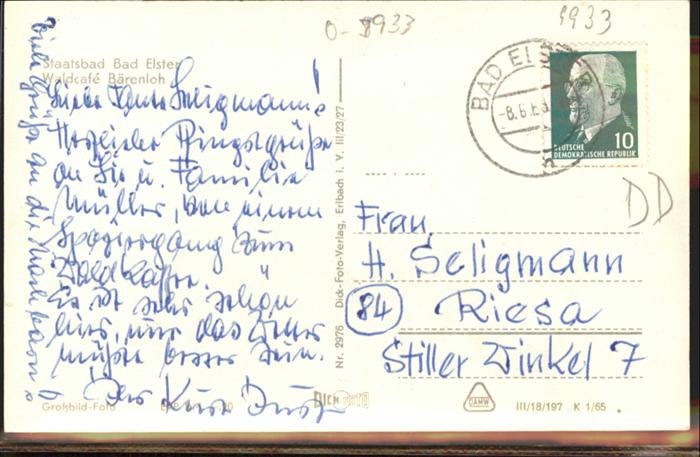 0-8933
8933
Staatsbad Bad Elster
Waldcafé Bärenloh
Liebe Seligmann!
Herzliche Pfingstgrüße
an Sie u. Familie
Müller, von einem
Spaziergang zum
Waldkaffee.
Es ist sehr schön
hier, nur das Wetter
müßte besser sein.
Ihr Kurt
Viele Grüße an die
Großbild-Foto
DICK FOTO
Nr. 2976 Dick-Foto-Verlag, Erlbach i. V. III/23/27
BAD ELST
-8.6.65
10
DEUTSCHE
DEMOKRATISCHE REPUBLIK
DD
Frau
H. Seligmann
84 Riesa
Stiller Winkel 7
DAMW
III/18/197 K 1/65